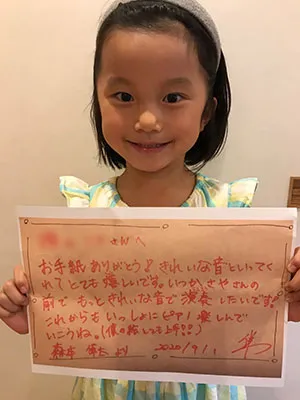 さんへ
お手紙ありがとう♪きれいな音といってく
れてとても嬉しいです。いつかさやさんの
前でもっときれいな音で演奏したいです。
これからもいっしょにピアノ楽しんで
いこうね。(僕の絵しても上手!!)
より 2020/9/1